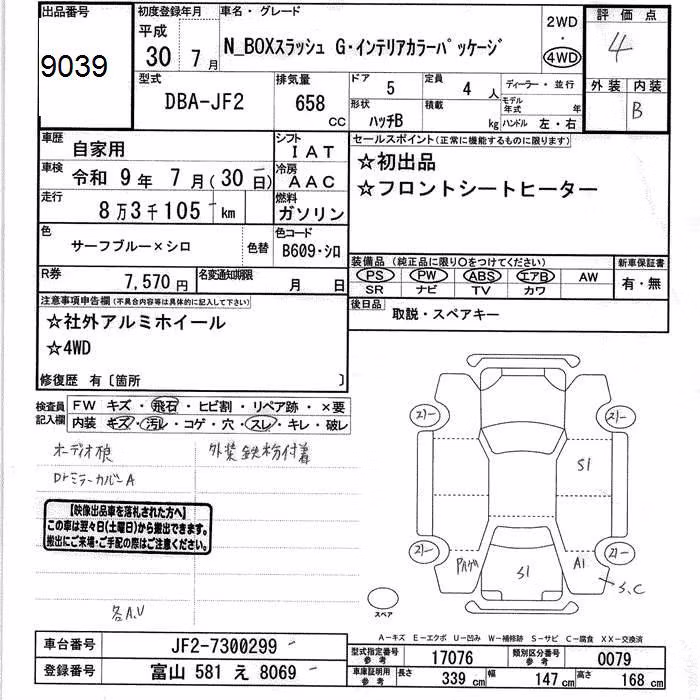 出品番号
9039
初度登録年月
平成
30年7月
車名・グレード
N_BOXスラッシュ G・インテリアカラーパッケージ
2WD
・
4WD
評価点
4
外装 内装
B
型式
DBA-JF2
排気量
658
CC
ドア
5
定員
4人
形状
ハッチB
積載
kg
ディーラー・並行
モデル年式 年
ハンドル 左・右
車歴
自家用
シフト
IAT
車検
令和 9年 7月(30日)
冷房
AAC
走行
8万3千105 km
燃料
ガソリン
色
サーフブルー×シロ
色替
色コード
B609・シロ
R券
7,570円
名変通知期限
月 日
セールスポイント(正常に機能するものに限ります)
☆初出品
☆フロントシートヒーター
装備品(純正品に限り○をつけてください)
PS PW ABS エアB AW
SR ナビ TV カワ
新車保証書
有・無
後日品
取説・スペアキー
注意事項申告欄(不具合内容等は具体的に記入して下さい)
☆社外アルミホイール
☆4WD
修復歴 有〔箇所 〕
検査員記入欄
FW キズ・飛石・ヒビ割・リペア跡・×要
内装 キズ・汚レ・コゲ・穴・スレ・キレ・破レ
オーディオ損
外装鉄粉付着
DrミラーカバーA
【映像出品車を落札された方へ】
この車は翌々日(土曜日)から搬出できます。
搬出にご来場・ご手配の際はご注意ください。
各A.U
S1
S1
A1
S.C
スペア
A-キズ E-エクボ U-凹み W-補修跡 S-サビ C-腐食 XX-交換済
車台番号
JF2-7300299
登録番号
富山 581 え 8069
型式指定番号
参考
17076
類別区分番号
参考
0079
車庫証明用
参考
長さ 339cm
幅 147cm
高さ 168cm